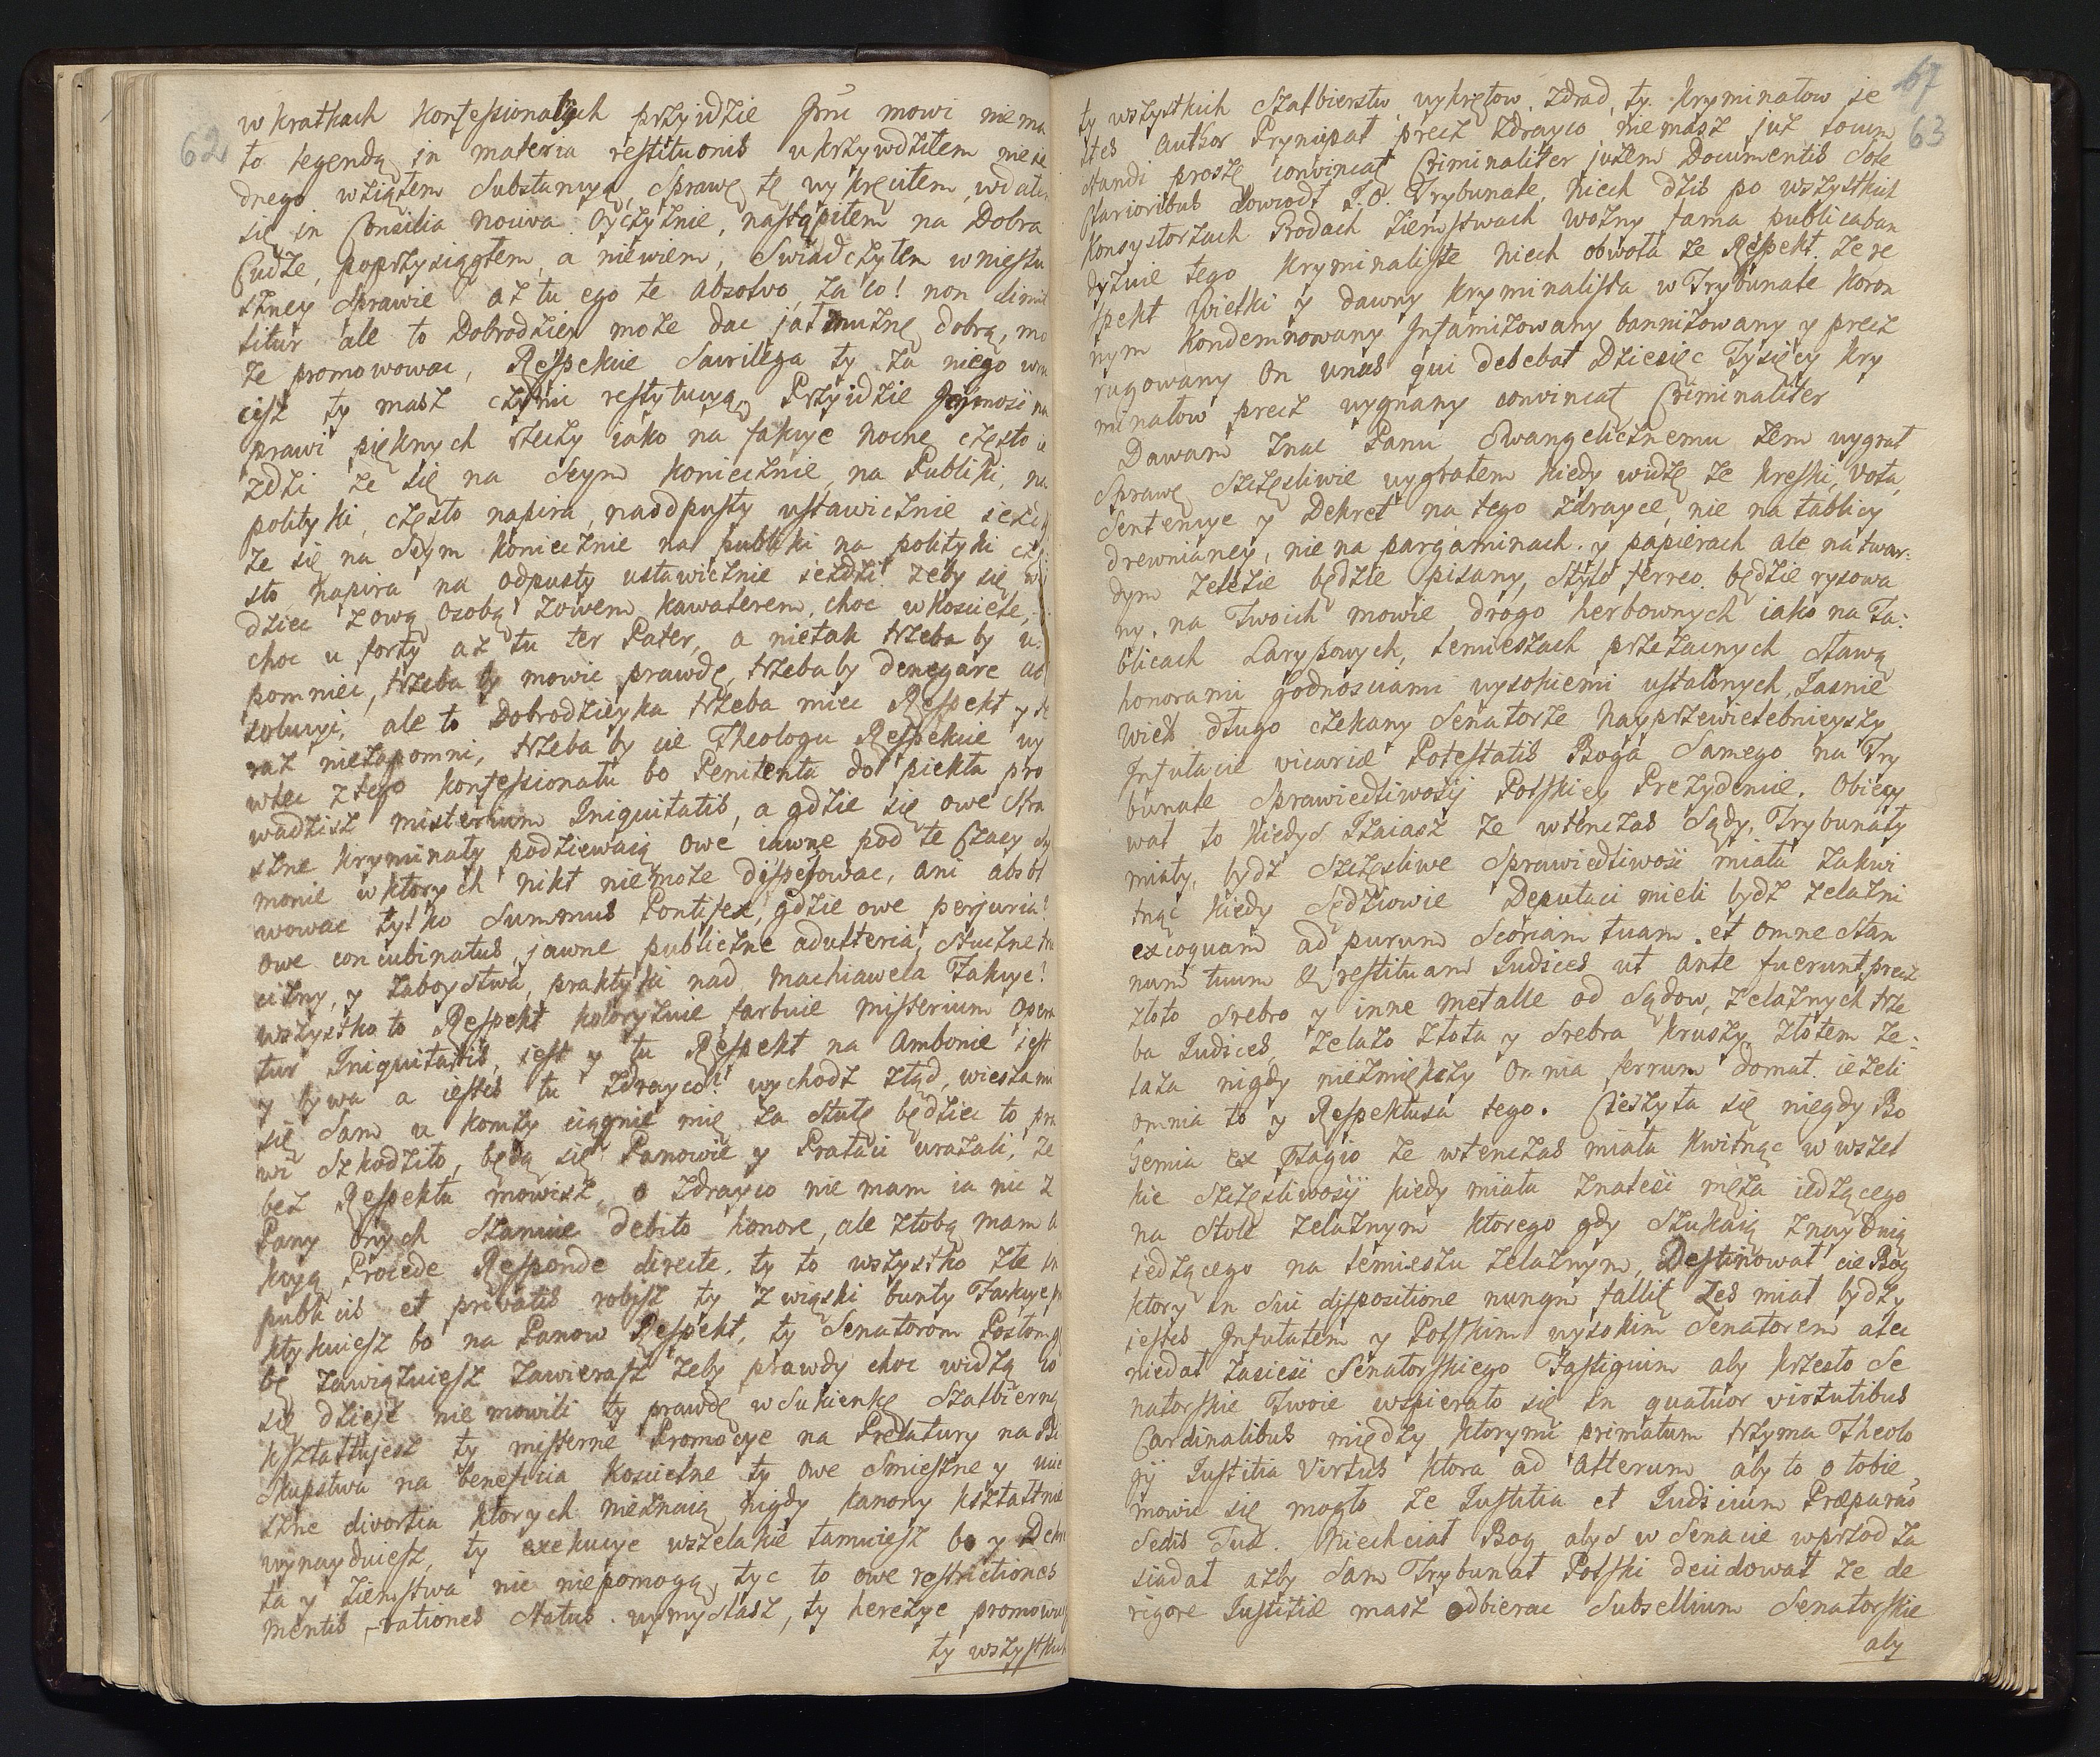 62
w kratkach konfessionalych przyidzie Jmć mowi niema
to legendą in materia restitutionis ukrzywdziłem nieie
dnego wziąłem Substancyą, Sprawę tę wykręciłem, wdałem
się in Consilia nociva Oyczyznie, nastąpiłem na Dobra
Cudze, poprzysiągłem a niewiem, Swiadczyłem w niesłu
szney Sprawie aż tu ego te absolvo, za co! non dimit
titur ale to Dobrodziey może dac jałmużnę dobrą, mo
że promowowac, Respekcie Sacrilega ty za niego wra
cisz ty masz czynic restytucyą. Przyidzie Jeymosc na
prawi pięknych rzeczy iako na fakcye nocne często ie
zdzi że się na Seym koniecznie, na Publiki, na
polityki, często napira, na odpusty ustawicznie ieżdzi
że się na Seym koniecznie na publiki na polityki czę
sto napira na odpusty ustawicznie ieżdzi żeby się wi
dziec z ową osobą zowem kawalerem, choc w kosciele,
choc u forty aż tu ter Pater, a nietak trzeba by u
pomniec, trzeba by mowic prawdę, trzeba by denegare ab
solucyi, ale to Dobrodzieyka trzeba miec Respekt y te
raz niezapomni, trzeba by cie Theologu Respekcie wy
wlec z tego konfessionału bo Penitenta do piekła pro
wadzisz misterium Iniquitatis, a gdzie się owe stra
szne kryminały podziewaią owe iawne pod te Czasy Sy
monie w ktorych nikt niemoże dispęsowac, ani absol
wowac tylko Summus Pontifex, gdzie owe perjuria?
owe concubinatus, jawne publiczne adulteria, sztuczne tru
cizny, y zaboystwa, praktyki nad Machiawela Fakcye?
wszystko to Respekt koloryzuie farbuie misterium opera
tur Iniquitatis, iest y tu Respekt na Ambonie iest
y bywa a iestes tu zdrayco! wychodz ztąd, wieszami
się Sam u komży ciągnie mię za stułę będziec to pra
wi Szkodziło, będą się Panowie y Prałaci urażali, że
bez Respektu mowisz, o zdrayco nie mam ia nic z
Pany onych Szanuie debito honore, ale ztobą mam a
kcyą Procede Responde directe, ty to wszystko złe in
publicis et privatis robisz ty związki bunty Fakcye pra
ktykuiesz bo na Panow Respekt, ty Senatorom Posłom gę
bę zawiązuiesz zawierasz żeby prawdy choc widzą co
się dzieie nie mowili ty prawdę w Sukienkę Szalbierną
kształtujesz ty misterne Promocye na Prelatury na Bi
skupstwa na beneficia Koscielne ty owe Smieszne y ucie
szne divortia ktorych nieznaią nigdy kanony kształtnie
wynayduiesz, ty exekucye wszelakie tamuiesz bo y Dekre
ta y Ziemstwa nic niepomogą, tyc to owe restrictiones
mentis, rationes Status wymyslasz, ty herezye promowuie
ty wszystkich
67
63
ty wszystkich Szalbierstw, wykrętow, zdrad, ty kryminałow ie
stes Author Pryncypał precz zdrayco niemasz już locum
standi proszę convincat Criminaliter jużem Documentis Sole
clarioribus dowiodł J.O. Trybunale, niech dzis po wszystkich
Konsystorzach Grodach Ziemstwach wozny fama publicaban
dyzuie tego kryminalistę niech obwoła że Respekt. że re
spekt wielki y dawny kryminalista w Trybunale koron
nym Kondemnowany Infamizowany bannizowany y precz
rugowany On unus qui debebat Dziesięc Tysięcy kry
minałow precz wygnany convincat Criminaliter
Dawam znac Panu Ewangelicznemu żem wygrał
Sprawę Szczęsliwie wygrałem kiedy widzę że kreski, vota,
Sentencye y Dekret na tego zdrayce, nie na tablicy
drewnianey, nie na pargaminach y papierach ale natwar:
dym żelezie będzie pisany, Stylo ferreo będzie rysowa
ny, na Twoich mowie drogo herbownych iako na Ta:
blicach Laryssowych, Lemieszach przezacnych Sławą
honorami godnosciami wysokiemi ustalonych, Jasnie
Wielm długo czekany Senatorze Nayprzewielebnieyszy
Infułacie vicariæ Potestatis Boga Samego na Try
bunale Sprawiedliwosci Polskiey Prezydencie. Obiecy
wał to kiedys Izaiasz że wtenczas Sądy, Trybunały
miały, bydz Szczęsliwe Sprawiedliwosc miała zakwi
tnąc kiedy Sędziowie Deputaci mieli bydz żelazni
excoquam ad purum Scoriam tuam. et omne Stan
num tuum & restituam Iudices ut ante fuerunt, precz
złoto srebro y inne metalle od Sądow, żelaznych trze
ba Iudices, żelazo złota y srebra kruszy złotem że:
laza nigdy niezmiękczy Omnia ferrum domat ieżeli
omnia to y Respektusa tego. Cieszyła się niegdy Bo
hemia ex Przagio że wtenczas miała kwitnąc w wszel
kie szczęsliwosci kiedy miała znalesc męża iedzącego
na stole żelaznym ktorego gdy szukaią znayduią
iedzącego na lemieszu żelaznym, Destinował cie Bog
ktory in Sui dispositione nunqm fallit żes miał bydz y
iestes Infułatem y Polskim wysokim Senatorem ale
niedał zasiesc Senatorskiego Fastigium aby krzesło Se
natorskie Twoie wspierało się in quatuor virtutibus
Cardinalibus między ktorymi primatum trzyma Theolo
gij Iustitia Virtus ktora ad Alterum aby to o tobie
mowic się mogło że Iustitia et Iudicium Præparao
Sedis Tuæ. Niechciał Bog abys w Senacie wprzod za
siadał ażby Sam Trybunał Polski decidował że de
rigore Iustitiæ masz odbierac Subsellium Senatorskie
aby